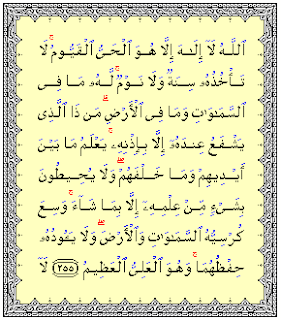 ٱللَّهُ لَآ إِلَـٰهَ إِلَّا هُوَ ٱلْحَىُّ ٱلْقَيُّومُ ۚ لَا
تَأْخُذُهُۥ سِنَةٌ وَلَا نَوْمٌ ۚ لَّهُۥ مَا فِى
ٱلسَّمَـٰوَٰتِ وَمَا فِى ٱلْأَرْضِ ۗ مَن ذَا ٱلَّذِى
يَشْفَعُ عِندَهُۥٓ إِلَّا بِإِذْنِهِۦ ۚ يَعْلَمُ مَا بَيْنَ
أَيْدِيهِمْ وَمَا خَلْفَهُمْ ۖ وَلَا يُحِيطُونَ
بِشَىْءٍ مِّنْ عِلْمِهِۦٓ إِلَّا بِمَا شَآءَ ۚ وَسِعَ
كُرْسِيُّهُ ٱلسَّمَـٰوَٰتِ وَٱلْأَرْضَ ۖ وَلَا يَـُٔودُهُۥ
حِفْظُهُمَا ۚ وَهُوَ ٱلْعَلِىُّ ٱلْعَظِيمُ ٢٥٥ لَآ